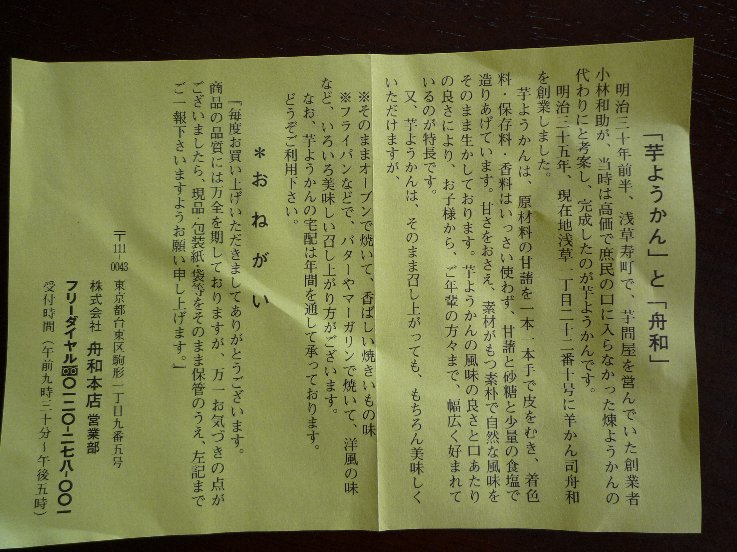 「芋ようかん」と「舟和」
明治三十年前半、浅草寿町で、芋問屋を営んでいた創業者
小林和助が、当時は高価で庶民の口に入らなかった煉ようかんの
代わりにと考案し、完成したのが芋ようかんです。
明治三十五年、現在地浅草一丁目二十二番十号に羊かん司舟和
を創業しました。
芋ようかんは、原材料の甘藷を一本一本手で皮をむき、着色
料・保存料・香料はいっさい使わず、甘藷と砂糖と少量の食塩で
造りあげています。甘さをおさえ、素材がもつ素朴で自然な風味を
そのまま生かしております。芋ようかんの風味の良さと口あたり
の良さにより、お子様から、ご年輩の方々まで、幅広く好まれて
いるのが特長です。
又、芋ようかんは、そのまま召し上がっても、もちろん美味しく
いただけますが、
※そのままオーブンで焼いて、香ばしい焼きいもの味
※フライパンなどで、バターやマーガリンで焼いて、洋風の味
など、いろいろ美味しい召し上がり方がございます。
なお、芋ようかんの宅配は年間を通して承っております。
どうぞご利用下さい。
＊おねがい
『毎度お買い上げいただきましてありがとうございます。
商品の品質には万全を期しておりますが、万一お気づきの点が
ございましたら、現品・包装紙・袋等をそのまま保管のうえ、左記まで
ご一報下さいますようお願い申し上げます。』
〒111-0043 東京都台東区駒形一丁目九番五号
株式会社 舟和本店 営業部
フリーダイヤル 〇一二〇-二七八-〇〇一
受付時間（午前九時三十分〜午後五時）